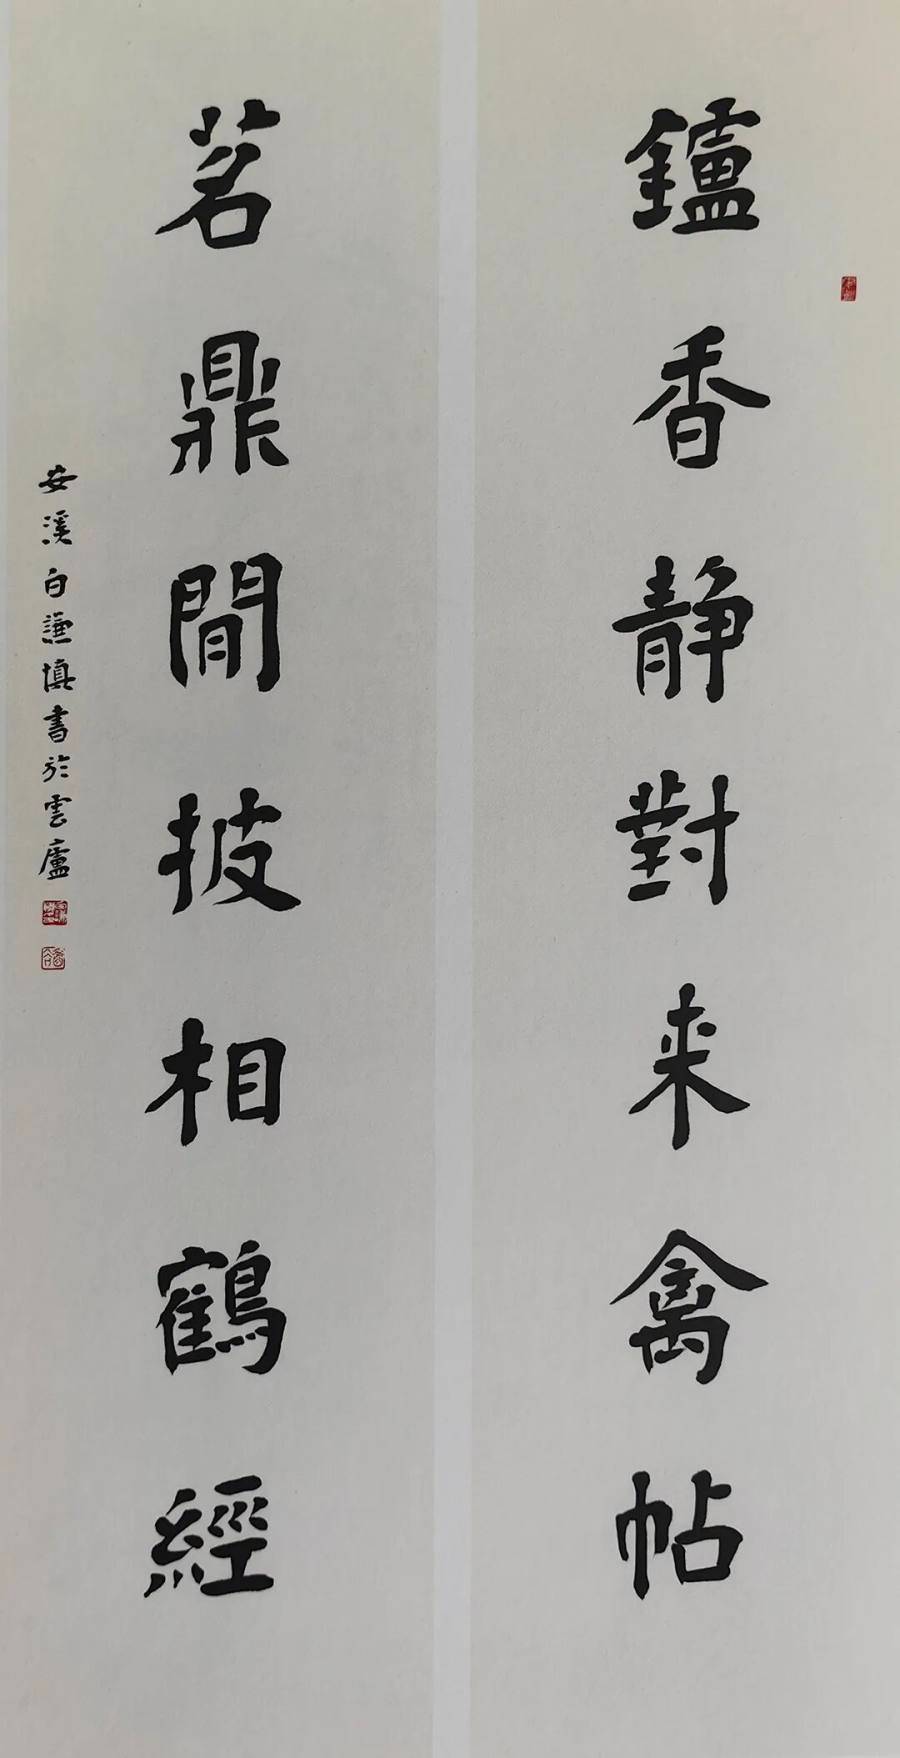 鑪香靜對来禽帖
茗鼎閒披相鶴經
安溪白謙慎書於雲廬